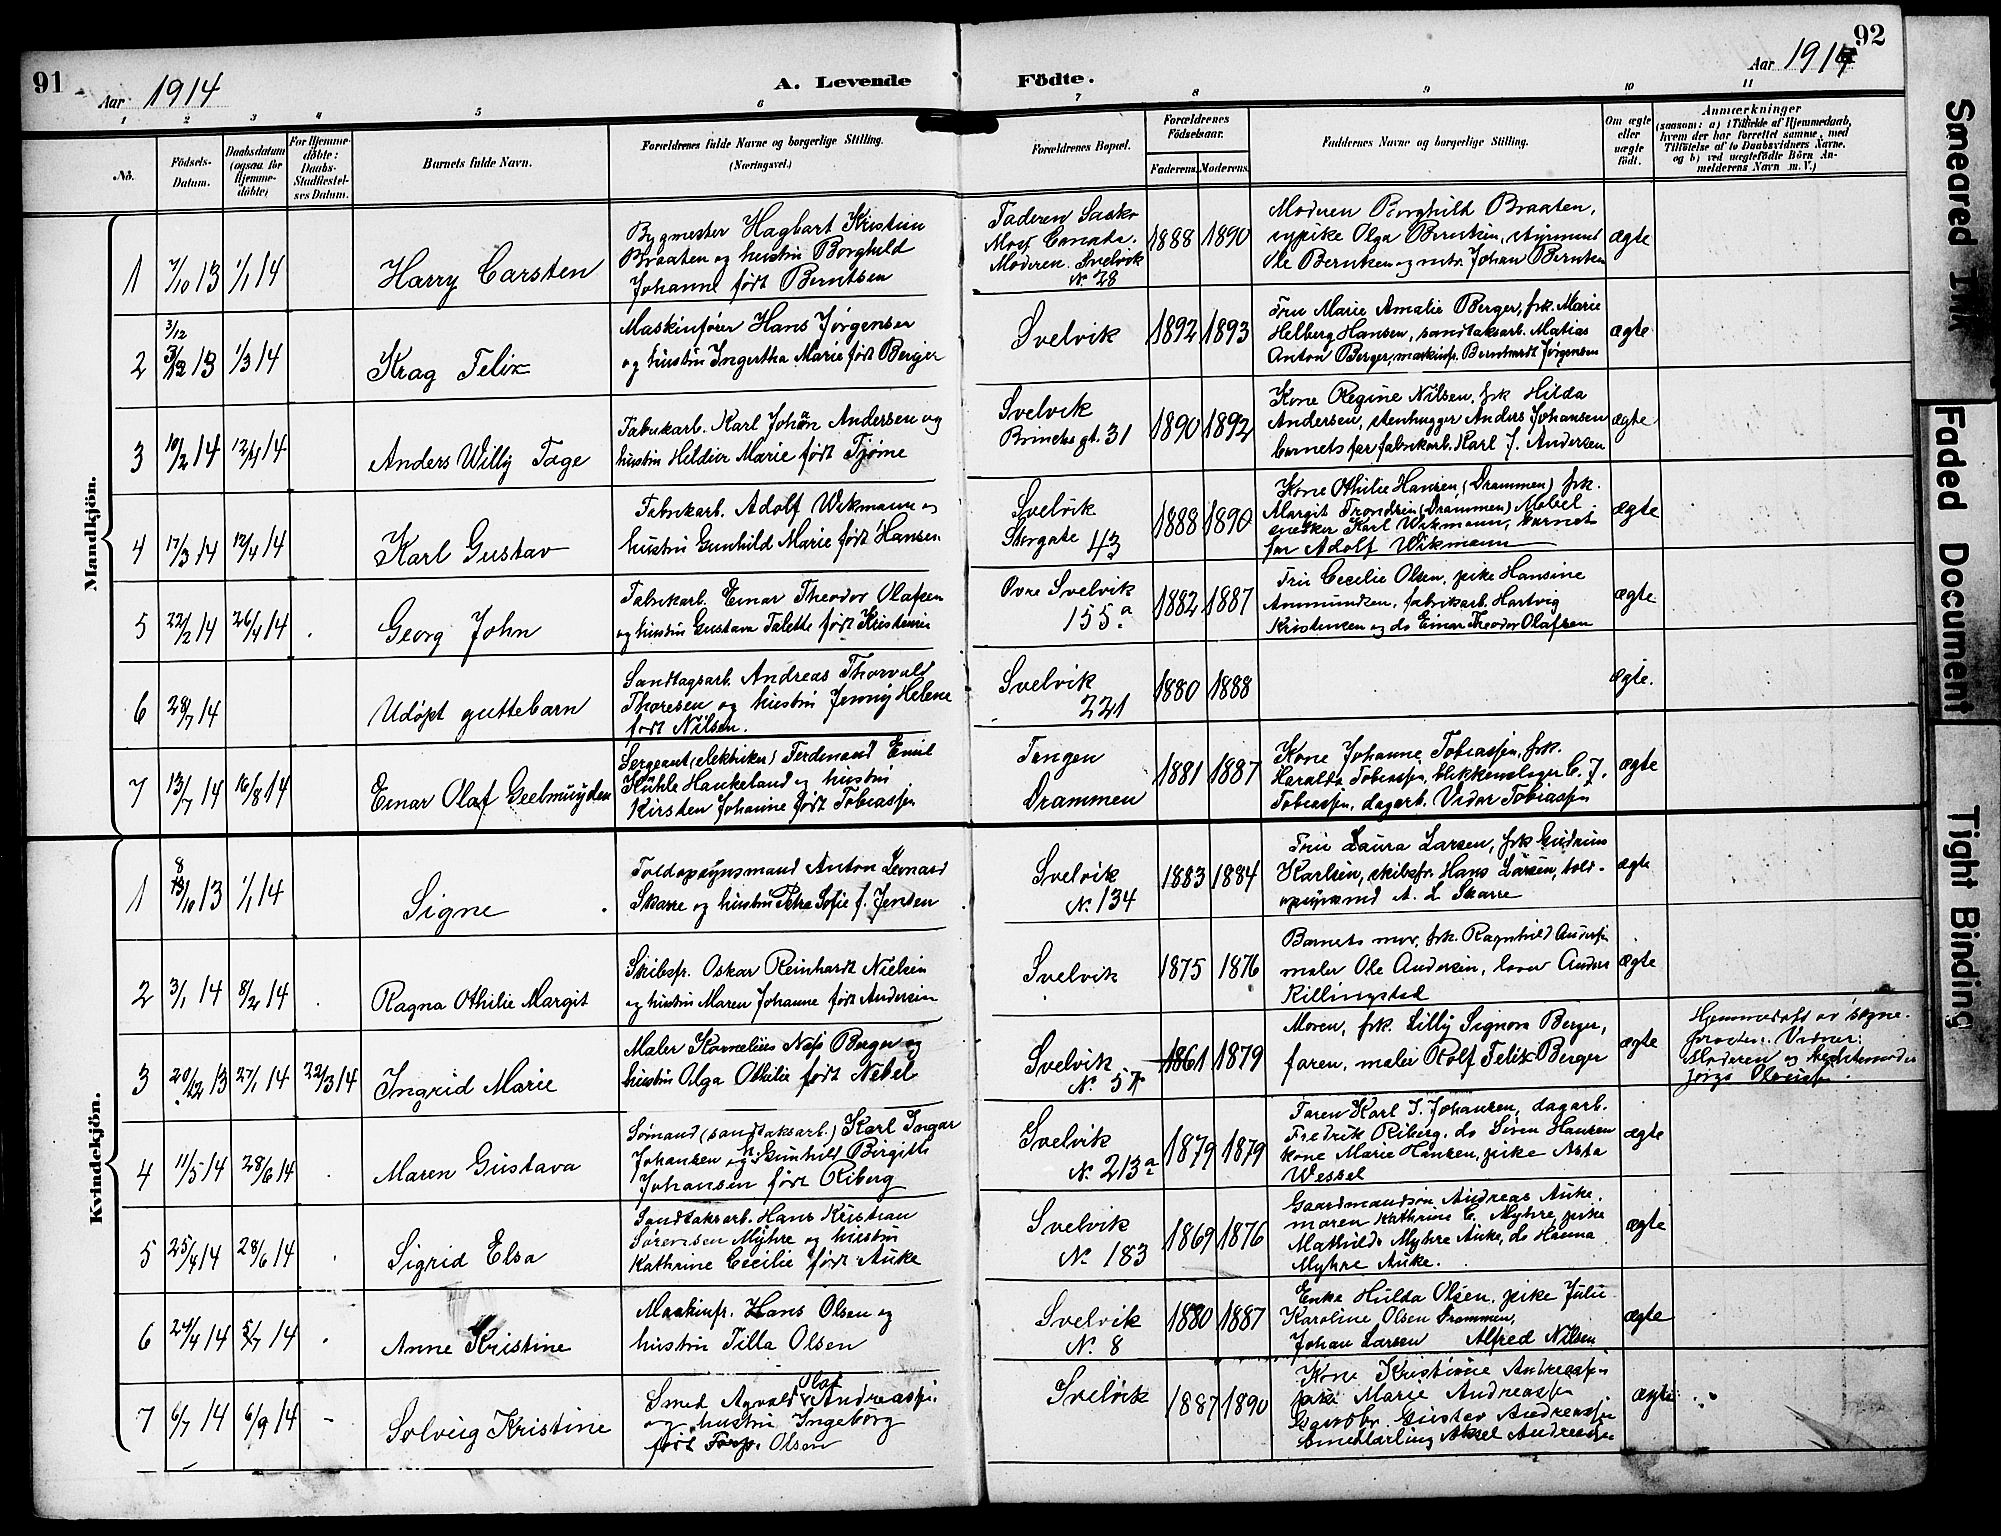 91
Aar 1914
A. Levende
Födte.
Aar 1914
92
1 2 3 4 5 6 7 8 9 10 11
No.
Födsels-
Datum.
Daabsdatum
(ogsaa for
Hjemme-
döbte)
For Hjemme-
döbte:
Daabs-
Stadfæstel-
ses Datum.
Barnets fulde Navn.
Forældrenes fulde Navne og borgerlige Stilling.
(Næringsvei.)
Forældrenes Bopæl.
Forældrenes
Födselsaar.
Faderens. Moderens.
Faddernes Navne og borgerlige Stilling.
Om ægte
eller
uægte
födt.
Anmærkninger
(saasom: a) i Tilfælde af Hjemmedaab,
hvem der har forrettet samme, med
Tilföielse af to Daabsvidners Navne,
og b) ved uægtefödte Börn An-
melderens Navn m. V.)
Mandkjön.
1
7/10 13
1/1 14
Harry Carsten
Bygmester Hagbart Kristian
Braaten og hustru Borghild
Johanne født Berntsen
Faderen Sask
Canada.
Moderen. Svelvik
No. 28
1888
1890
Moderen Borghild Braaten,
sypike Olga Berntsen, styrmand
Ole Berntsen og mtr. Johan Berntsen
ægte
2
3/12
3/12 13
1/3 14
Krag Felix
Maskinfører Hans Jørgensen
og hustru Ingertha Marie født Berger
Svelvik
1892
1893
Fru Marie Amalie Berger, frk. Marie
Helberg Hansen, sandtaksarb. Matias
Anton Berger, maskinf. Bernhardt Jørgensen
ægte
3
10/2 14
12/4 14
Anders Willy Tage
Fabrikarb. Karl Johan Andersen og
hustru Heldier Marie født Tjøme
Svelvik
gt. 31
1890
1892
Kone Regine Nilsen, frk Hilda
Andersen, stenhugger Anders Johansen
barnets far fabrikarb. Karl J. Andersen
ægte
4
17/3 14
12/4 14
Karl Gustav
Fabrikarb. Adolf Wikmann og
hustru Gunhild Marie født Hansen
Svelvik
Storgate 43
1888
1890
Kone Othilie Hansen (Drammen) frk.
Margit Trondsen (Drammen) Møbel
snekker Karl Wikmann, barnets
far Adolf Wikmann
ægte
5
22/2 14
26/4 14
Georg John
Fabrikarb. Einar Theodor Olafsen
og hustru Gustava Talette født Kristensen
Øvre Svelvik
155a
1882
1887
Fru Cecilie Olsen, pike Hansine
Ammundsen, fabrikarb. Hartvig
Kristensen og do Einar Theodor Olafsen
ægte
6
28/7 14
Udøpt guttebarn
Sandtagsarb. Andreas Thorvald
Thoresen og hustru Jenny Helene
født Nilsen.
Svelvik
221
1880
1888
ægte.
7
13/7 14
16/8 14
Einar Olaf Geelmuyden
Sergeant (elektriker) Ferdinand Emil
Kühle Haukeland og hustru
Kirsten Johanne født Tobiassen
Tangen
Drammen
1881
1887
Kone Johanne Tobiassen, frk.
Haralda Tobiassen, blikkenslager C. J.
Tobiassen, dagarb. Vidar Tobiassen
ægte
Kvindekjön.
1
8
/10 13
1/1 14
Signe
Toldopsynsmand Anton Leonard
Skarre og hustru Petra Sofie f. Jensen
Svelvik
No. 134
1883
1884
Fru Laura Larsen, frk Gudrun
Karlsen, skibsfr. Hans Larsen, told-
opsynsmd A. L Skarre
ægte
2
3/1 14
8/2 14
Ragna Othilie Margit
Skibsfr. Oskar Reinhardt Nielsen
og hustru Maren Johanne født Andersen
Svelvik
1875
1876
Barnets mor, frk. Ragnhild Andersen
maler Ole Andersen, Anders
Killingstad
ægte
3
20/12 13
27/1 14
22/3 14
Ingrid Marie
Maler Kornelius Næss Berger og
hustru Olga Othilie født Nebel
Svelvik
No. 57
1861
1879
Moren, frk. Lilly Signora Berger,
faren, maler Rolf Felix Berger
ægte
Hjemmedøbt av sogne-
presten. Vidner:
Moderen og
4
11/5 14
28/6 14
Maren Gustava
Sømand (sandtaksarb.) Karl Ingar
Johansen og Gunhild Birgitte
Johansen født Riberg
Svelvik
No. 213a
1879
1879
Faren Karl I. Johansen, dagarb.
Fredrik Riberg, do Søren Hansen
kone Marie Hansen, pike Asta
Wessel
ægte
5
25/4 14
28/6 14
Sigrid Elsa
Sandtaksarb. Hans Kristian
Sørensen Myhre og hustru
Kathrine Cecilie født Auke
Svelvik
No 183
1869
1876
Gaardmandsøn Andreas Auke,
moren Kathrine C. Myhre, pike
Mathilde Myhre Auke, do Hanna
Myhre Auke.
ægte
6
24/4 14
5/7 14
Anne Kristine
Maskinfr. Hans Olsen og
hustru Tilla Olsen
Svelvik
No. 8
1880
1887
Enke Hulda Olsen, pike Julie
Karoline Olsen Drammen,
Johan Larsen Alfred Nilsen
ægte
7
6/7 14
6/9 14
Solveig Kristine
Olaf
Smed Agvald Andreassen
og hustru Ingeborg
født Olsen
Svelvik
1887
1890
Kone Kristine Andreassen
pike Marie Andreassen
Gustav Andreassen
Smedlærling Aksel Andreassen
ægte
Smeared Ink
Faded Document
Tight Binding